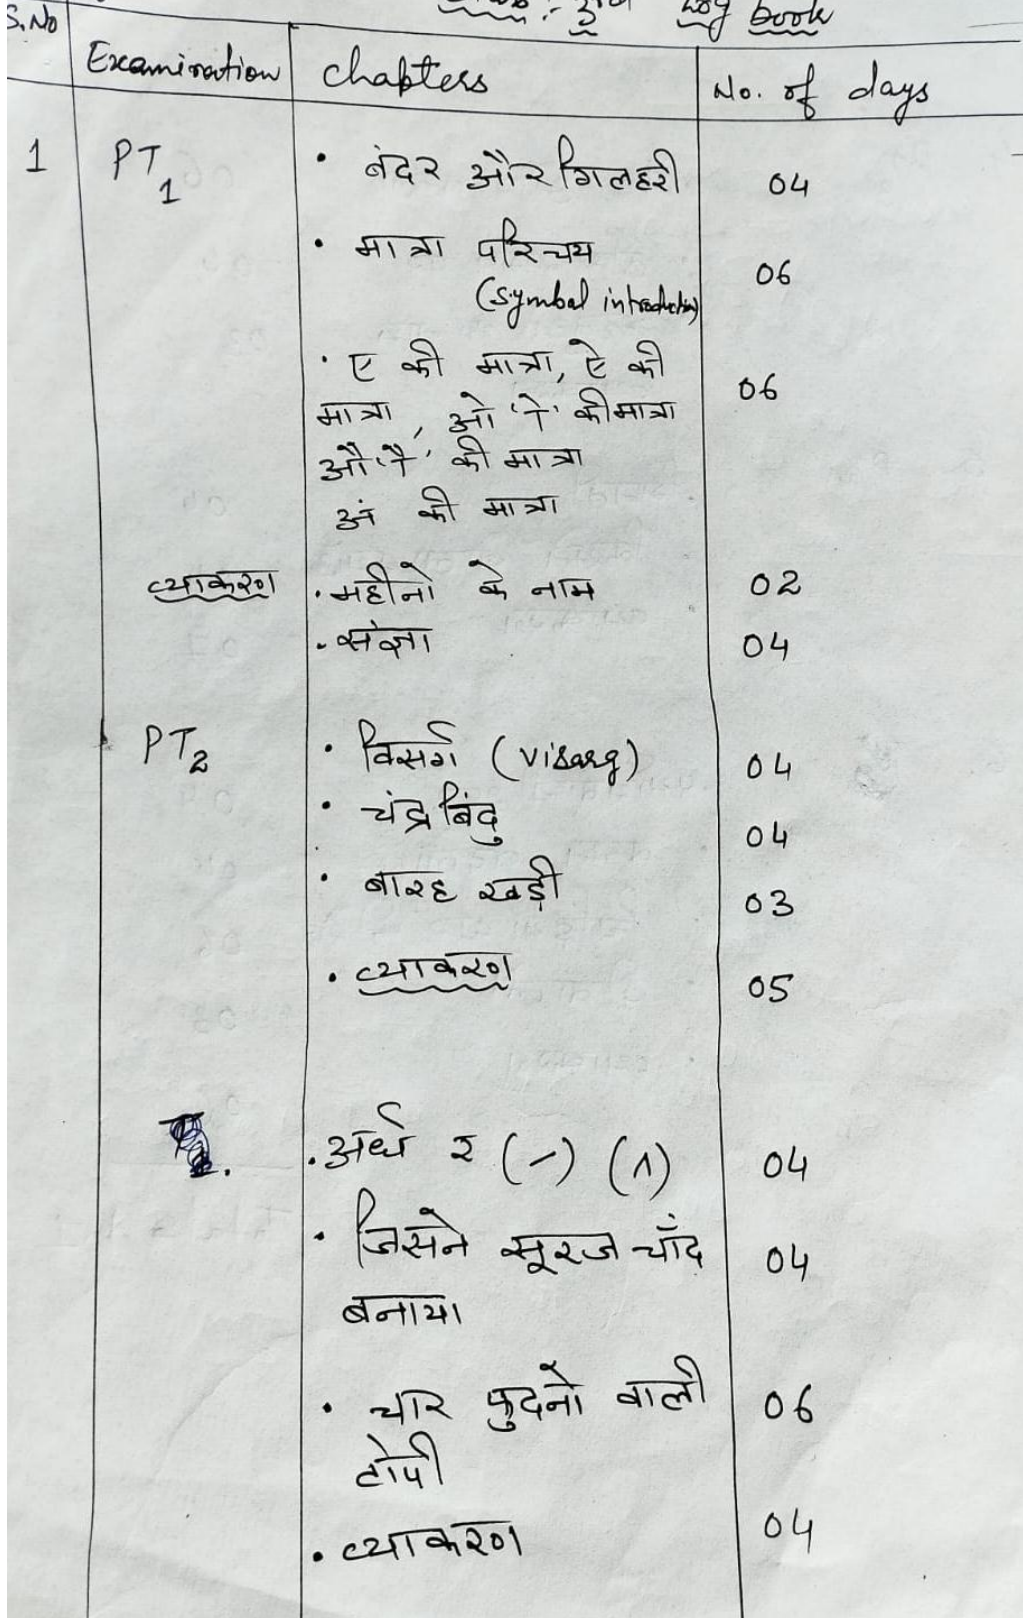 Log book
S.No Examination chapters No. of days
1 PT1 • बंदर और गिलहरी 04
• मात्रा परिचय 06
(Symbal introduction)
• ए की मात्रा, ऐ की 06
मात्रा, ओ 'ो' की मात्रा
औ 'ौ' की मात्रा
अं की मात्रा
व्याकरण • महीनो के नाम 02
• संज्ञा 04
PT2 • विसर्ग (Visarg) 04
• चंद्र बिंदु 04
• बारह खड़ी 03
• व्याकरण 05
• अर्ध र (-) (^) 04
• जिसने सूरज चाँद 04
बनाया
• चार फुदनो वाली 06
टोपी
• व्याकरण 04